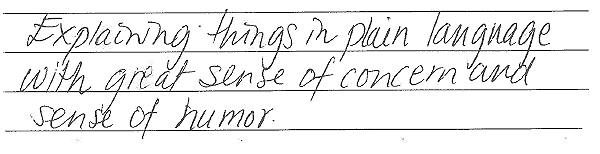 Explaining things in plain language
with great sense of concern and
sense of humor.